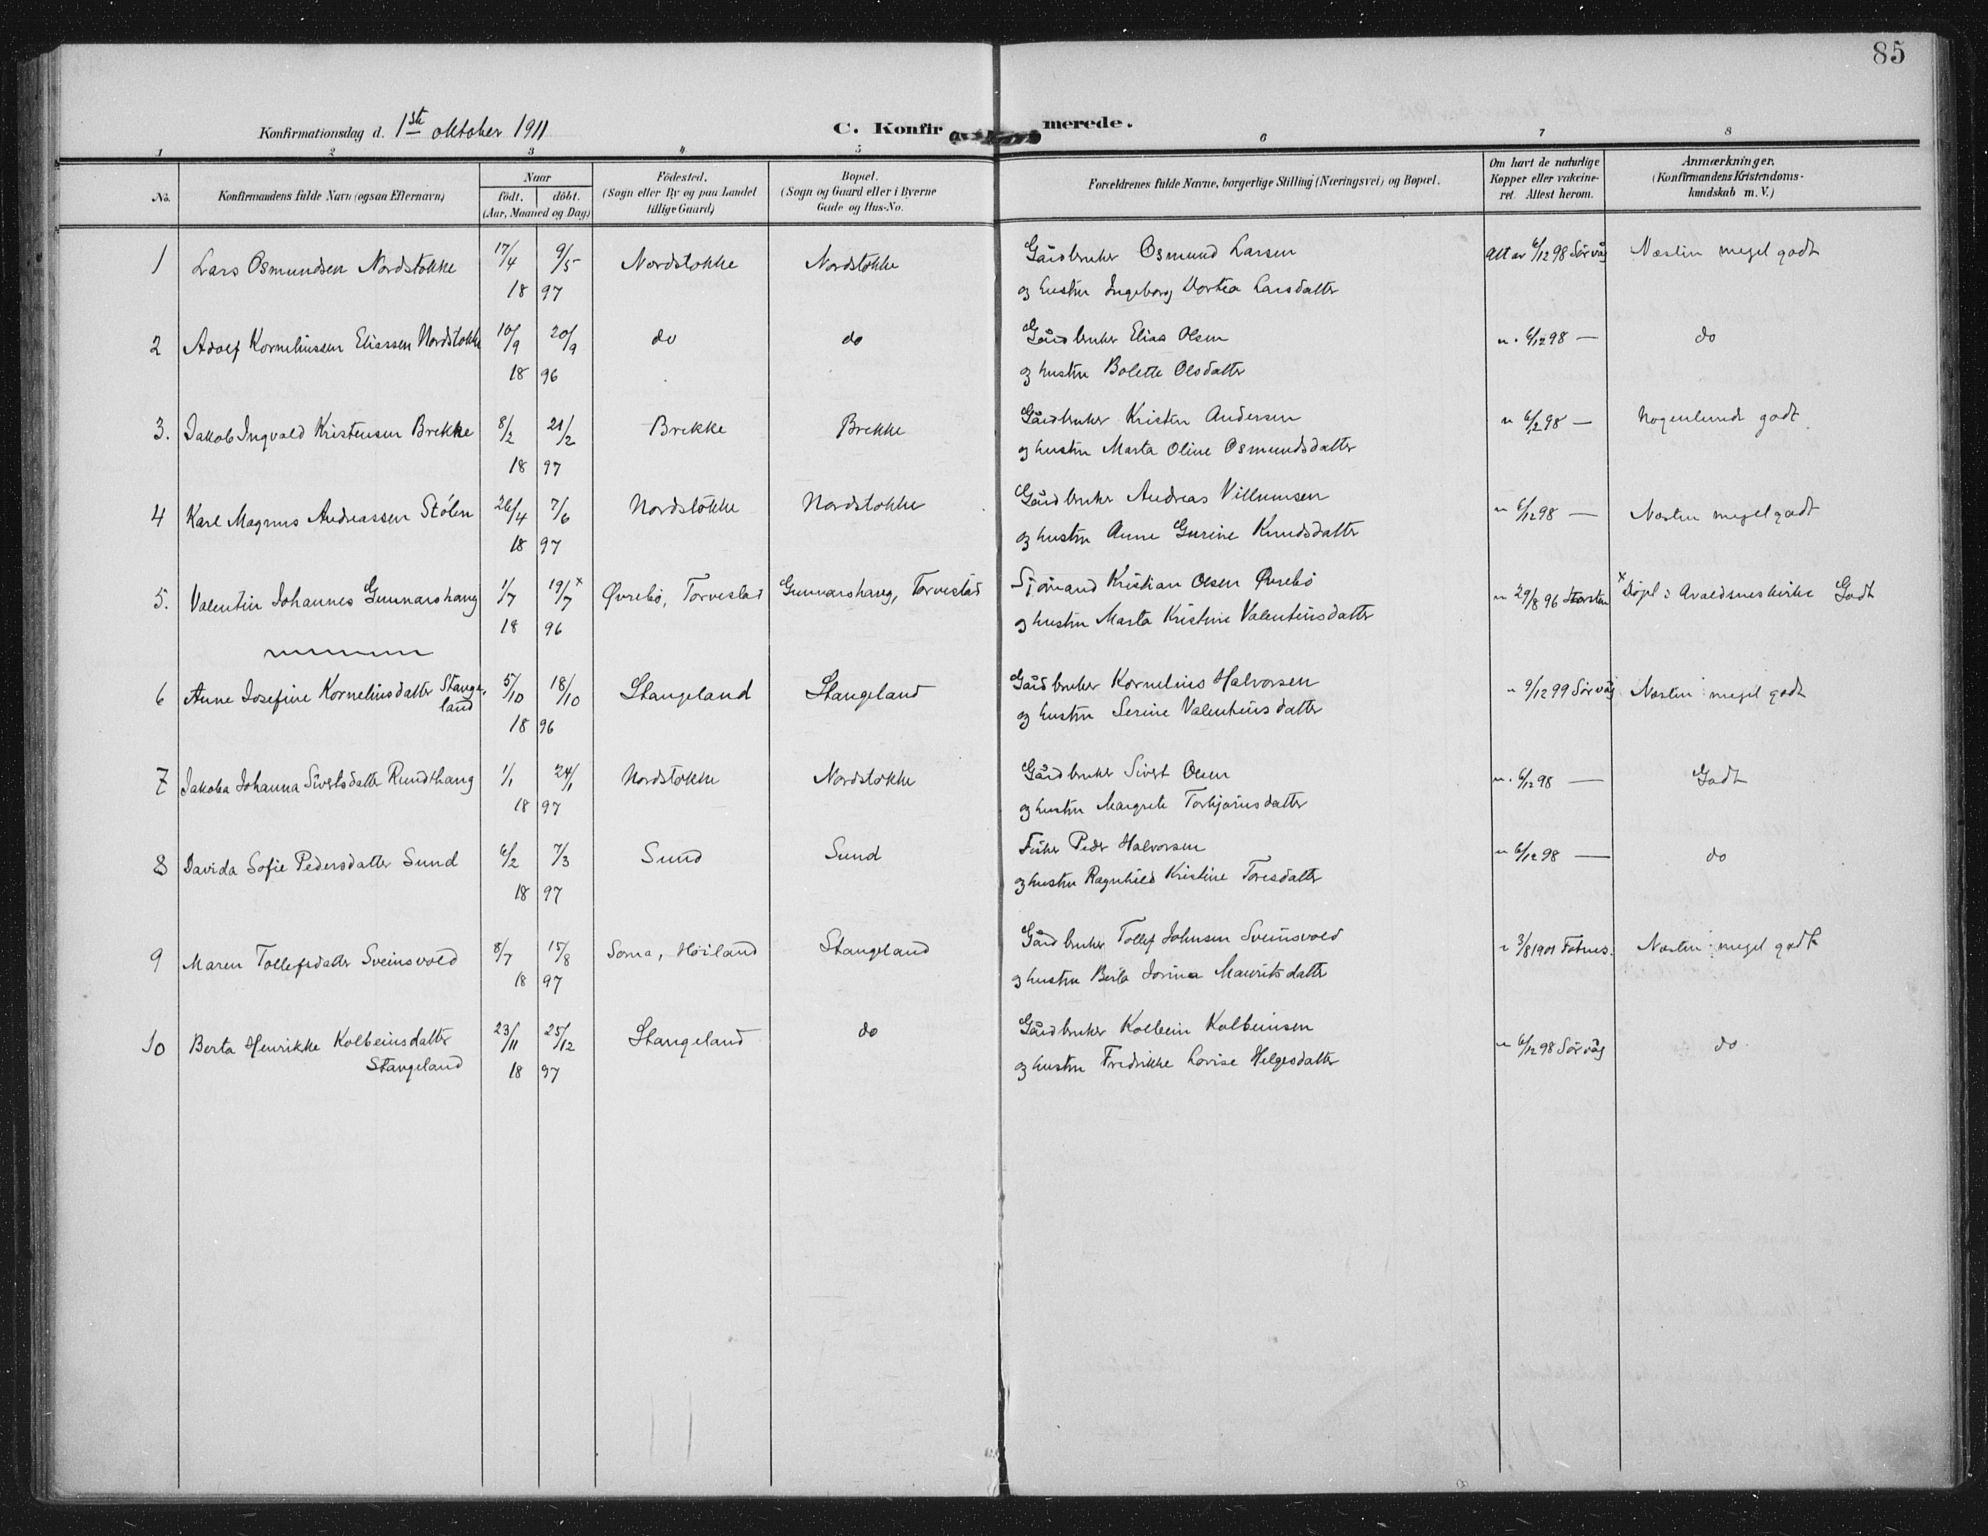 85
Konfirmationsdag d. 1ste oktober 1911 C. Konfirmerede.
1 2 3 4 5 6 7 8
No. Konfirmandens fulde Navn (ogsaa Efternavn) Naar født. døbt. (Aar, Maaned og Dag) Fødested. (Sogn eller By og paa Landet tillige Gaard) Bopæl. (Sogn og Gaard eller i Byerne Gade og Hus-No. Forældrenes fulde Navne, borgerlige Stilling (Næringsvei) og Bopæl. Om havt de naturlige Kopper eller vakcineret. Attest herom. Anmærkninger. (Konfirmandens Kristendomskundskab m. V.)
1 Lars Osmundsen Nordstokke 17/4 9/5 Nordstokke Nordstokke Gårdbruker Osmund Larsen Att av 6/12 98 Sørvåg Næsten meget godt
18 97 og hustru Ingeborg Dortea Larsdatter
2 Adolf Korneliussen Eliassen Nordstokke 10/9 20/9 do do Gårdbruker Elias Olsen " 6/12 98 — do
18 96 og hustru Bolette Olsdatter
3. Jakob Ingvald Kristensen Brekke 8/2 21/2 Brekke Brekke Gårdbruker Kristen Andersen " 6/12 98 — Nogenlunde godt
18 97 og hustru Marta Oline Osmundsdatter
4 Karl Magnus Andreassen Stølen 26/4 7/6 Nordstokke Nordstokke Gårdbruker Andreas Villumsen " 6/12 98 — Næsten meget godt
18 97 og hustru Anne Gurine Knudsdatter
5. Valentin Johannes Gunnarshaug 1/7 19/7 x Øvrebø, Torvestad Gunnarshaug, Torvestad Sjømand Kristian Olsen Øvrebø " 29/8 96 x Døpt i Avaldsnes kirke Godt
18 96 og hustru Marta Kristine Valentinsdatter
6 Anne Josefine Korneliusdatter Stangeland 5/10 18/10 Stangeland Stangeland Gårdbruker Kornelius Halvorsen " 9/12 99 Sørvåg Næsten meget godt
18 96 og hustru Serine Valentinsdatter
7 Jakoba Johanna Sivertsdatter Rundhaug 1/1 24/1 Nordstokke Nordstokke Gårdbruker Sivert Olsen " 6/12 98 — Godt
18 97 og hustru Margrete Torbjørnsdatter
8 Davida Sofie Pedersdatter Sund 6/2 7/3 Sund Sund Fisker Peder Halvorsen " 6/12 98 — do
18 97 og hustru Ragnhild Kristine Toresdatter
9 Maren Tollefsdatter Sveinsvold 8/7 15/8 Soma, Høiland Stangeland Gårdbruker Tollef Johnsen Sveinsvold " 3/8 1901 Næsten meget godt
18 97 og hustru Berta Jorina Mauritsdatter
10 Berta Henrikke Kolbeinsdatter 23/11 25/12 Stangeland do Gårdbruker Kolbein Kolbeinsen " 6/12 98 Sørvåg do
Stangeland 18 97 og hustru Fredrikke Lovise Helgesdatter